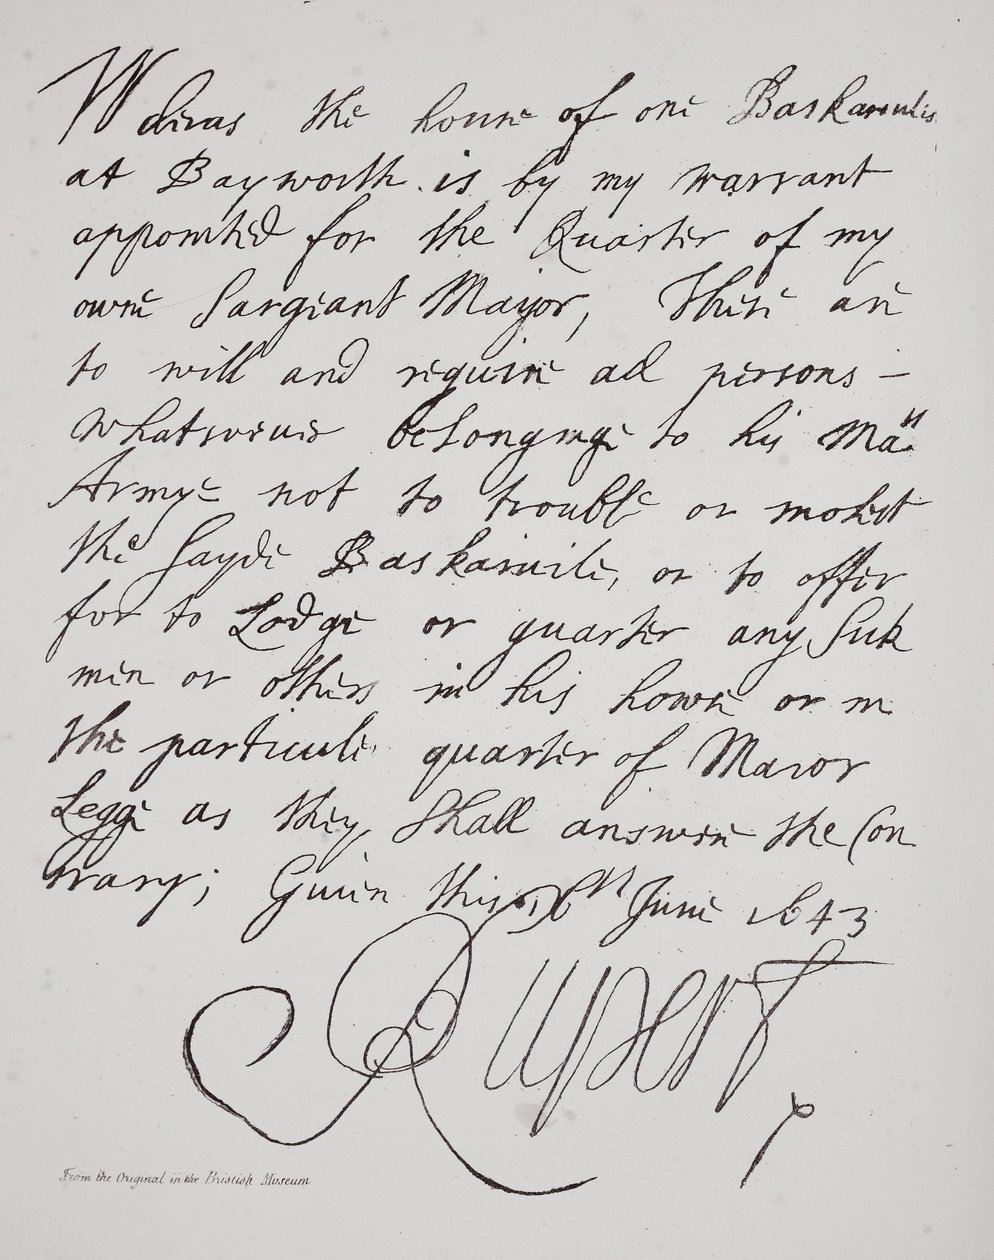 Wheras the house of one Baskarvile
at Bayworth is by my warrant
appointed for the Quarter of my
owne Sargeant Mayor, These are
to will and require all persons –
whatsoever belonginge to his Ma^ts
Armye not to trouble or molest
the sayde Baskarvile, or to offer
for to Lodge or quarter any such
men or others in his howse or in
the particule quarter of Maior
Legge as they shall answere the Con
trary; Given this th June 1643
Rupert
From the Original in the Bristish Museum